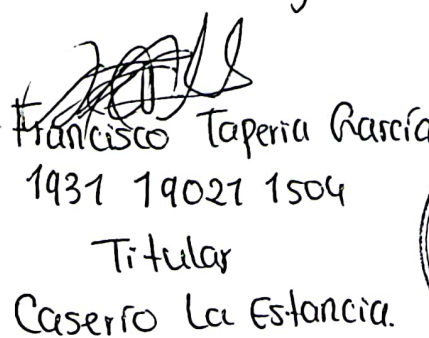 Francisco Taperia García
1931 19021 1504
Titular
Caserío La Estancia.